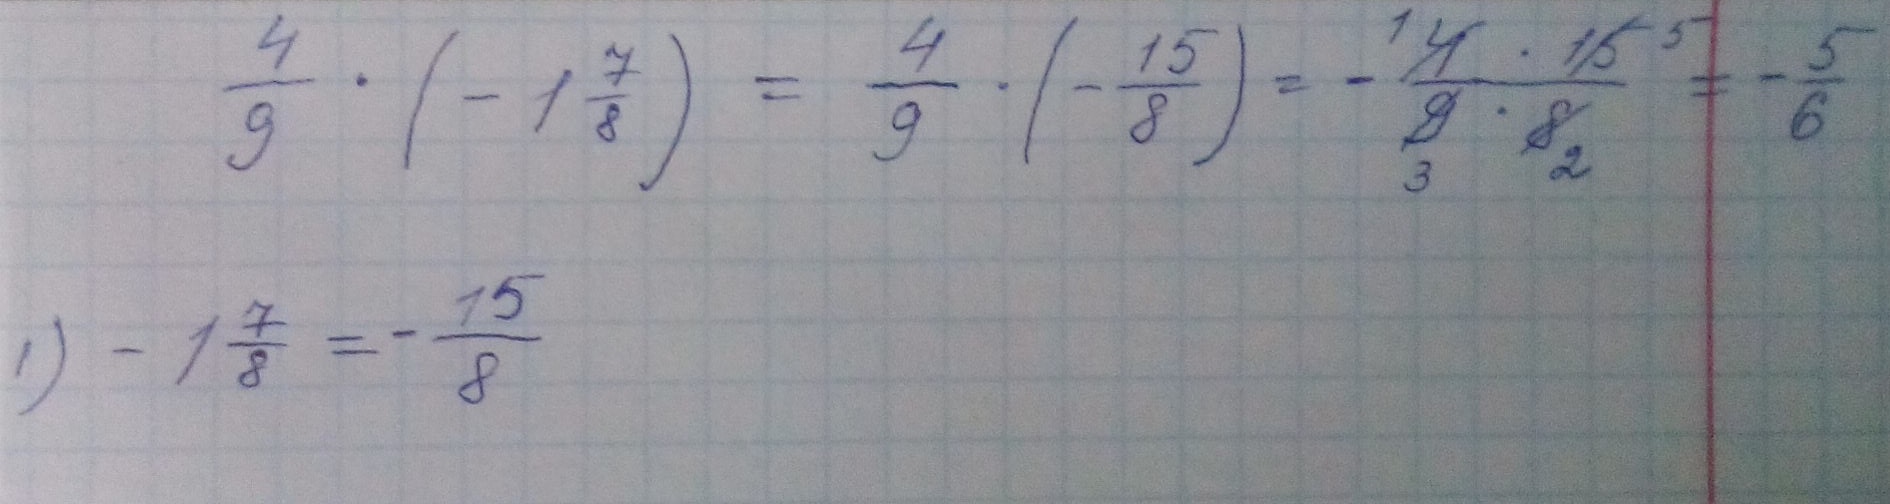 4/9 · (- 1 7/8) = 4/9 · (- 15/8) = - 1 4 · 15 5 / 9 3 · 8 2 = - 5/6
1) - 1 7/8 = - 15/8